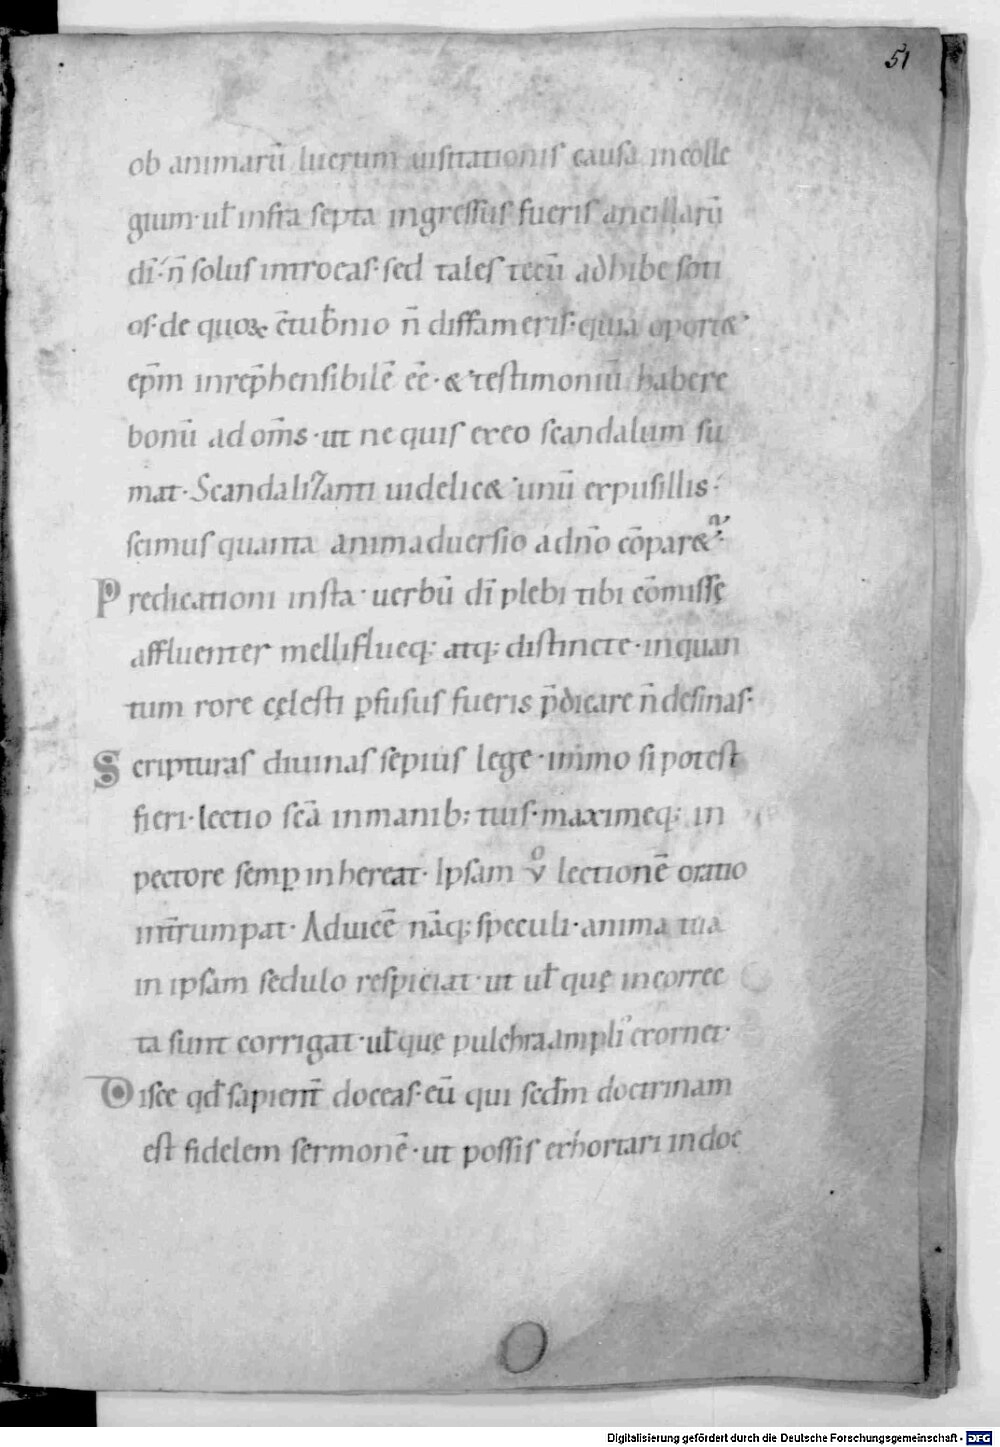 51
ob animarū lucrum uisitationis causa in colle
gium · ul̄ infra septa ingressus fueris ancillarū
dī · n̄ solus introeas · sed tales tecū adhibe soti
os · de quoꝝ c̄tub̄nio n̄ diffameris · quia oport&
ep̄m inrep̄hensibilē ēē · & testimoniū habere
bonū ad om̄s · ut ne quis ex eo scandalum su
mat · Scandalizanti uidelic& unū ex pusillis ·
scimus quanta animaduersio a dn̄o cōparet&ʳ
Predicationi insta · uerbū dī plebi tibi cōmissę
affluenter mellifluęq; atq; distincte · inquan
tum rore cęlesti ꝑfusus fueris p̄dicare n̄ desinas ·
Scripturas diuinas sepius lege · immo si potest
fieri · lectio scā in manib; tuis · maximeq; in
pectore semꝑ inhereat · Ipsam vͦ lectionē oratio
int̄rumpat · Ad uicē nāq; speculi · anima tua
in ipsam sedulo respiciat · ut ul̄ quę incorrec
ta sunt corrigat · ul̄ quę pulchra ampli' exornet ·
Disce qd̄ sapient̄ doceas · eū qui scd̄m doctrinam
est fidelem sermonē · ut possis exhortari in doc
Digitalisierung gefördert durch die Deutsche Forschungsgemeinschaft - DFG